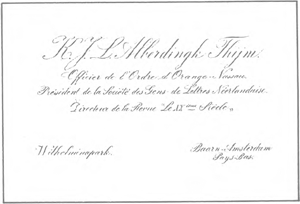 K. J. L. Alberdingk Thijm.
Officier de l'Ordre d'Orange-Nassau.
Président de la Société des Gens de Lettres Néerlandaise.
Directeur de la Revue "Le XXème Siècle„
Wilhelminapark. Baarn-Amsterdam
Pays-Bas.